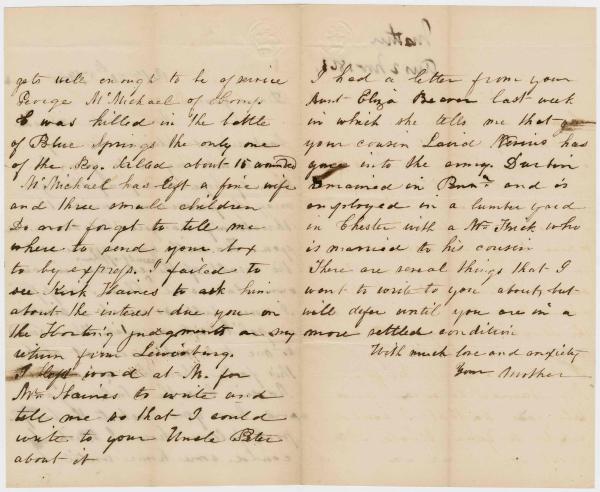 gets well enough to be of service
George McMichael of Comp
E was killed in the battle
of Blue Springs the only one
of the Reg. killed about 15 wounded
McMichael has left a fine wife
and three small children
Do not forget to tell me
where to send your box
to by express. I failed to
see Kirk Haines to ask him
about the interest due you on
the judgments on my
return from Lewisburg.
I left word at M. for
Mr. Haines to write and
tell me so that I could
write to your Uncle Peter
about it
Mother
I had a letter from your
Aunt Eliza Beaver last week
in which she tells me that
your cousin Laird has
gone into the army. Durbin
remained in Penna and is
employed in a lumber yard
in Chester with a Mr. Frick who
is married to his cousin
There are several things that I
want to write to you about, but
will defer until you are in a
more settled condition
With much love and anxiety
Your Mother